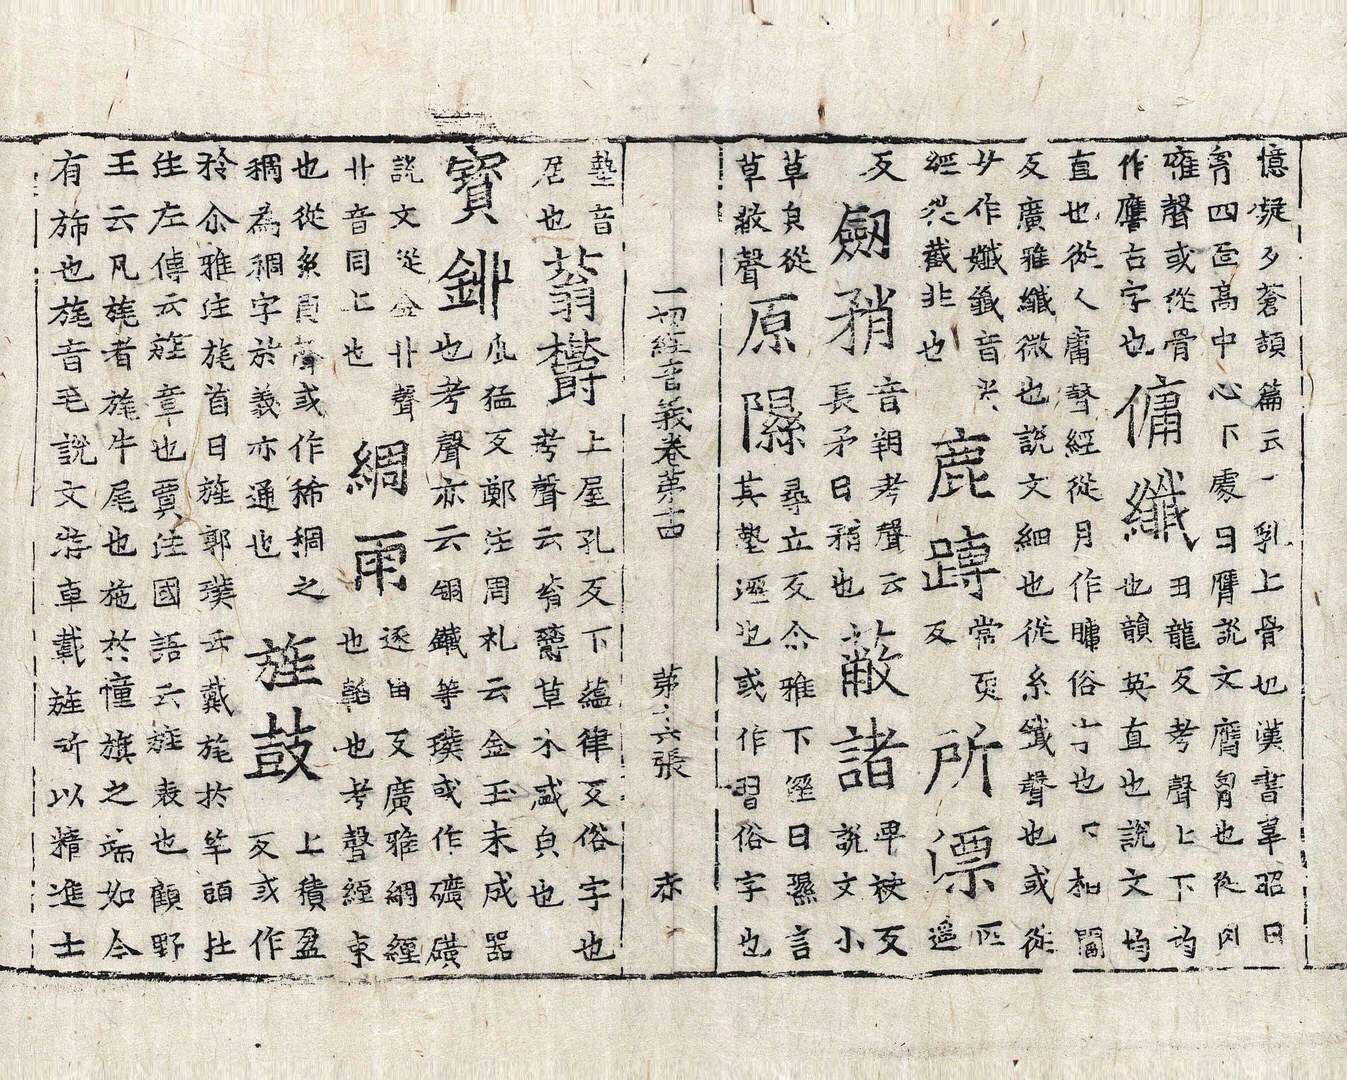 憶凝反蒼頡篇云乳上骨也漢書韋昭曰
胷四面高中心下處曰膺說文膺胷也從肉
雁聲或從骨作膺古字也傭纖丑龍反考聲上下均也韻英直也說文均
直也從人庸聲經從月作𦟛俗字也下相閻
反廣雅纖微也說文細也從糸韱聲也或從
女作孅韱音尖經從截非也鹿蹲常耎反所僄匹遥
反劒矟音朔考聲云長矛曰矟也蔽諸卑袂反說文小
草皃從草敝聲原隰尋立反尒雅下溼曰隰言其墊溼也或作習俗字也
一切經音義卷第十四 第六張 赤
墊音居也蓊欝上屋孔反下蘊律反俗字也考聲云蓊欝草木盛皃也
寶鉚虢猛反鄭注周礼云金玉未成器也考聲亦云銅鐵等璞或作礦磺
說文從金丱聲丱音同上也綢雨逐由反廣雅綢經也韜也考聲經束
也從糸周聲或作稀稠之稠為稠字於義亦通也旌鼓上積盈反或作
𣃘尒雅注旄首曰旌郭璞云戴旄於竿頭注左傳云旌章也賈注國語云旌表也顧野
王云凡旄者旄牛尾也施於幢旗之端如今
有旆也旄音毛說文游車載旌所以精進士